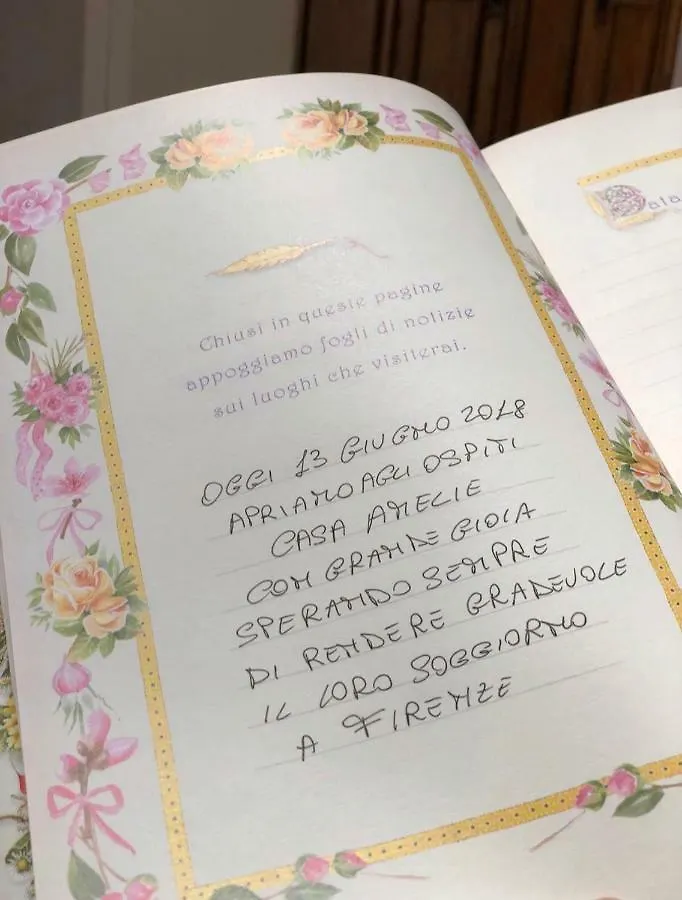 Chiusi in queste pagine
appoggiamo fogli di notizie
sui luoghi che visiterai.
OGGI 13 GIUGNO 2018
APRIAMO AGLI OSPITI
CASA AMELIE
CON GRANDE GIOIA
SPERANDO SEMPRE
DI RENDERE GRADEVOLE
IL LORO SOGGIORNO
A FIRENZE